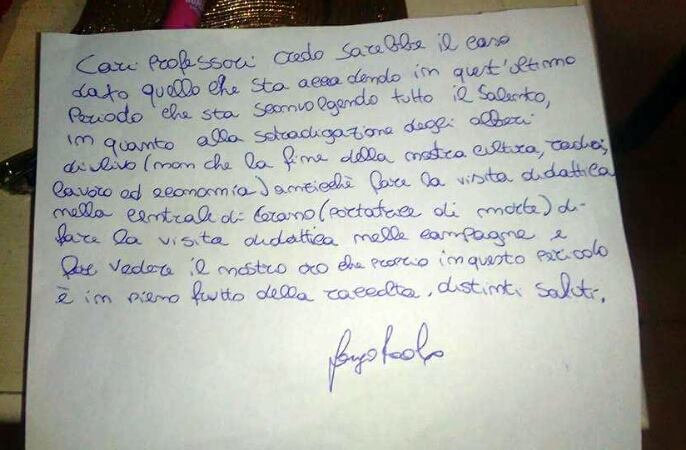 Cari Professori credo sarebbe il caso
dato quello che sta accadendo in quest'ultimo
Periodo che sta sconvolgendo tutto il Salento,
in quanto alla sdradigazione degli alberi
di ulivo (non che la fine della nostra cultura, radici,
lavoro ed economia) anticchè fare la visita didattica
nella centrale di Cerano (portatrice di morte) di
fare la visita didattica nelle campagne e
far vedere il nostro oro che proprio in questo periodo
è in pieno frutto della raccolta. distinti saluti.